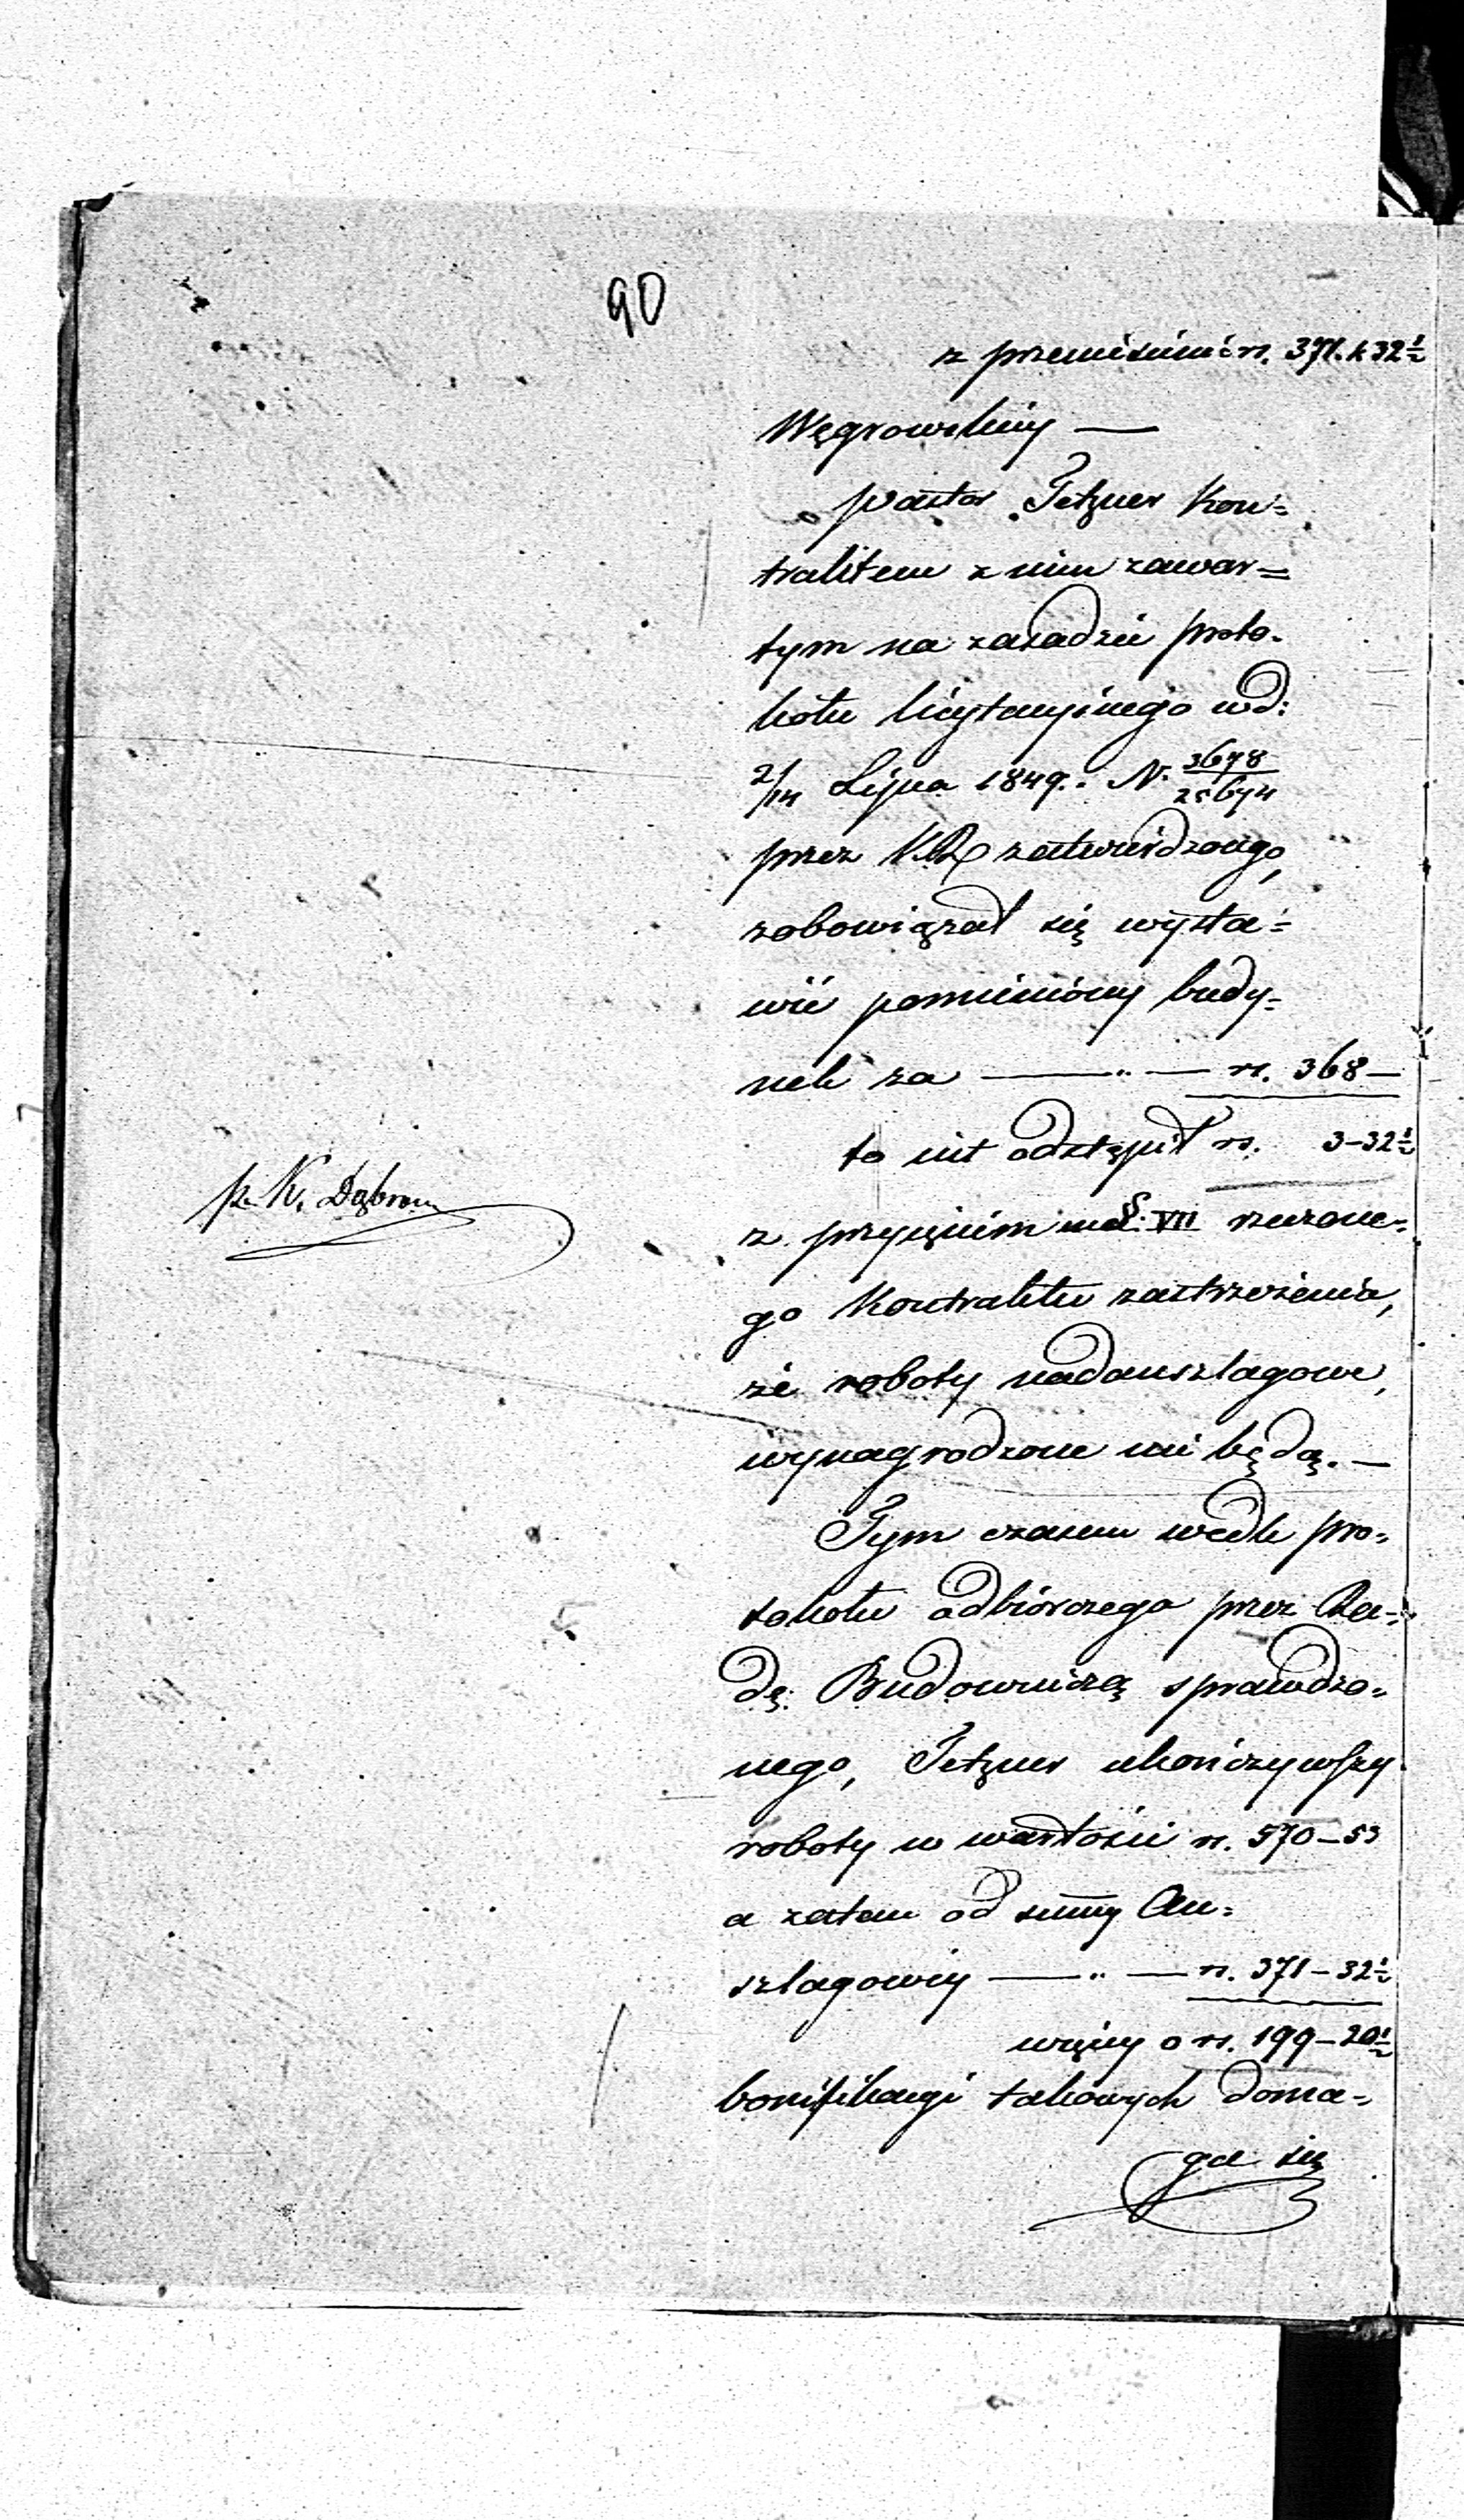 90
z przeniesienia rs. 371. k 32½
Węgrowskiej —
pastor Tetzner Kon=
traktem z nim zawar=
tym na zasadzie proto=
kółu licytacyjnego wd:
2/14 Lipca 1849. N. 3678/25674
przez KR zatwierdzonego,
zobowiązał się wysta=
wić pomieniony budy=
nek za — " — rs. 368 —
to jest odstąpił rs. 3-32½
z przyjęciem wd. §. VII rzeczone=
go Kontraktu zastrzeżenia,
że roboty nadanszlagowe,
wynagrodzone nie będą. —
Tym czasem wedle pro=
tokółu odbiorczego przez Ra=
dę Budowniczą sprawdzo=
nego, Tetzner ukończywszy
roboty w wartości rs. 570-53
a zatem od summy An=
szlagowej — " — rs. 371-32½
więcej o rs. 199-20½
bonifikacyi takowych doma=
ga się
p. K. Dąbrow